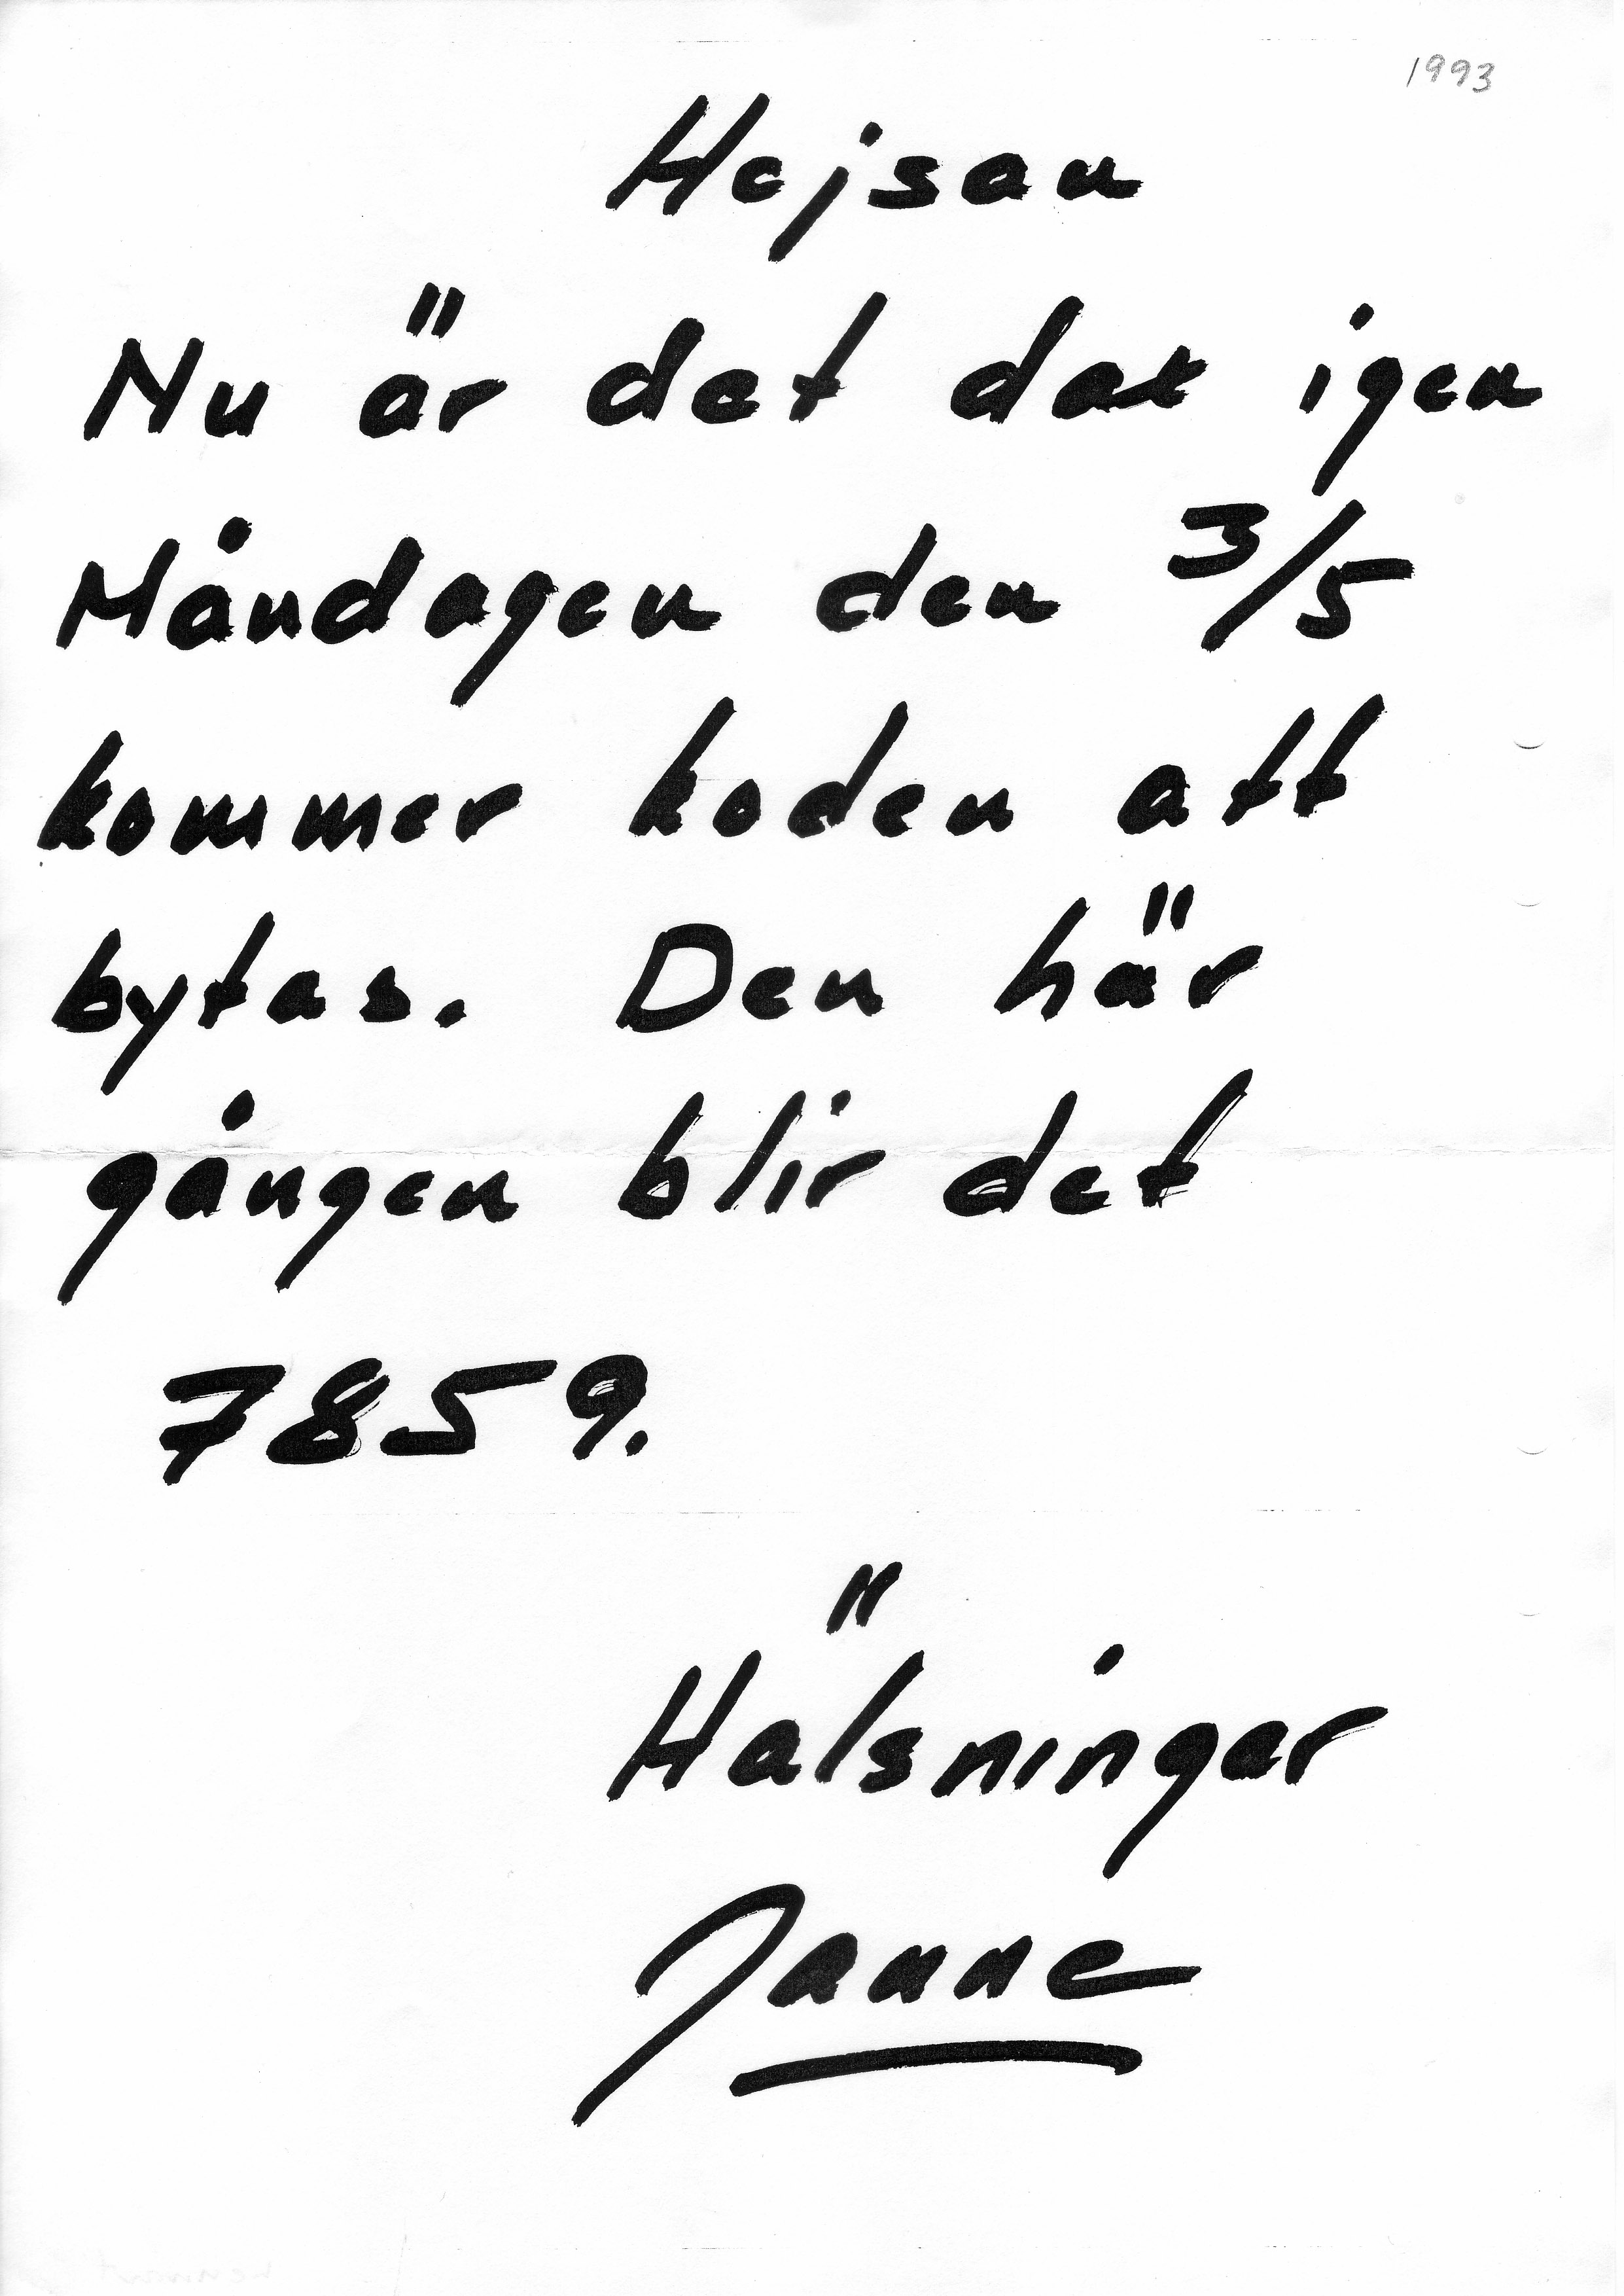 1993
Hejsan
Nu är det dax igen
Måndagen den 3/5
kommer koden att
bytas. Den här
gången blir det
7859.
Hälsningar
Janne